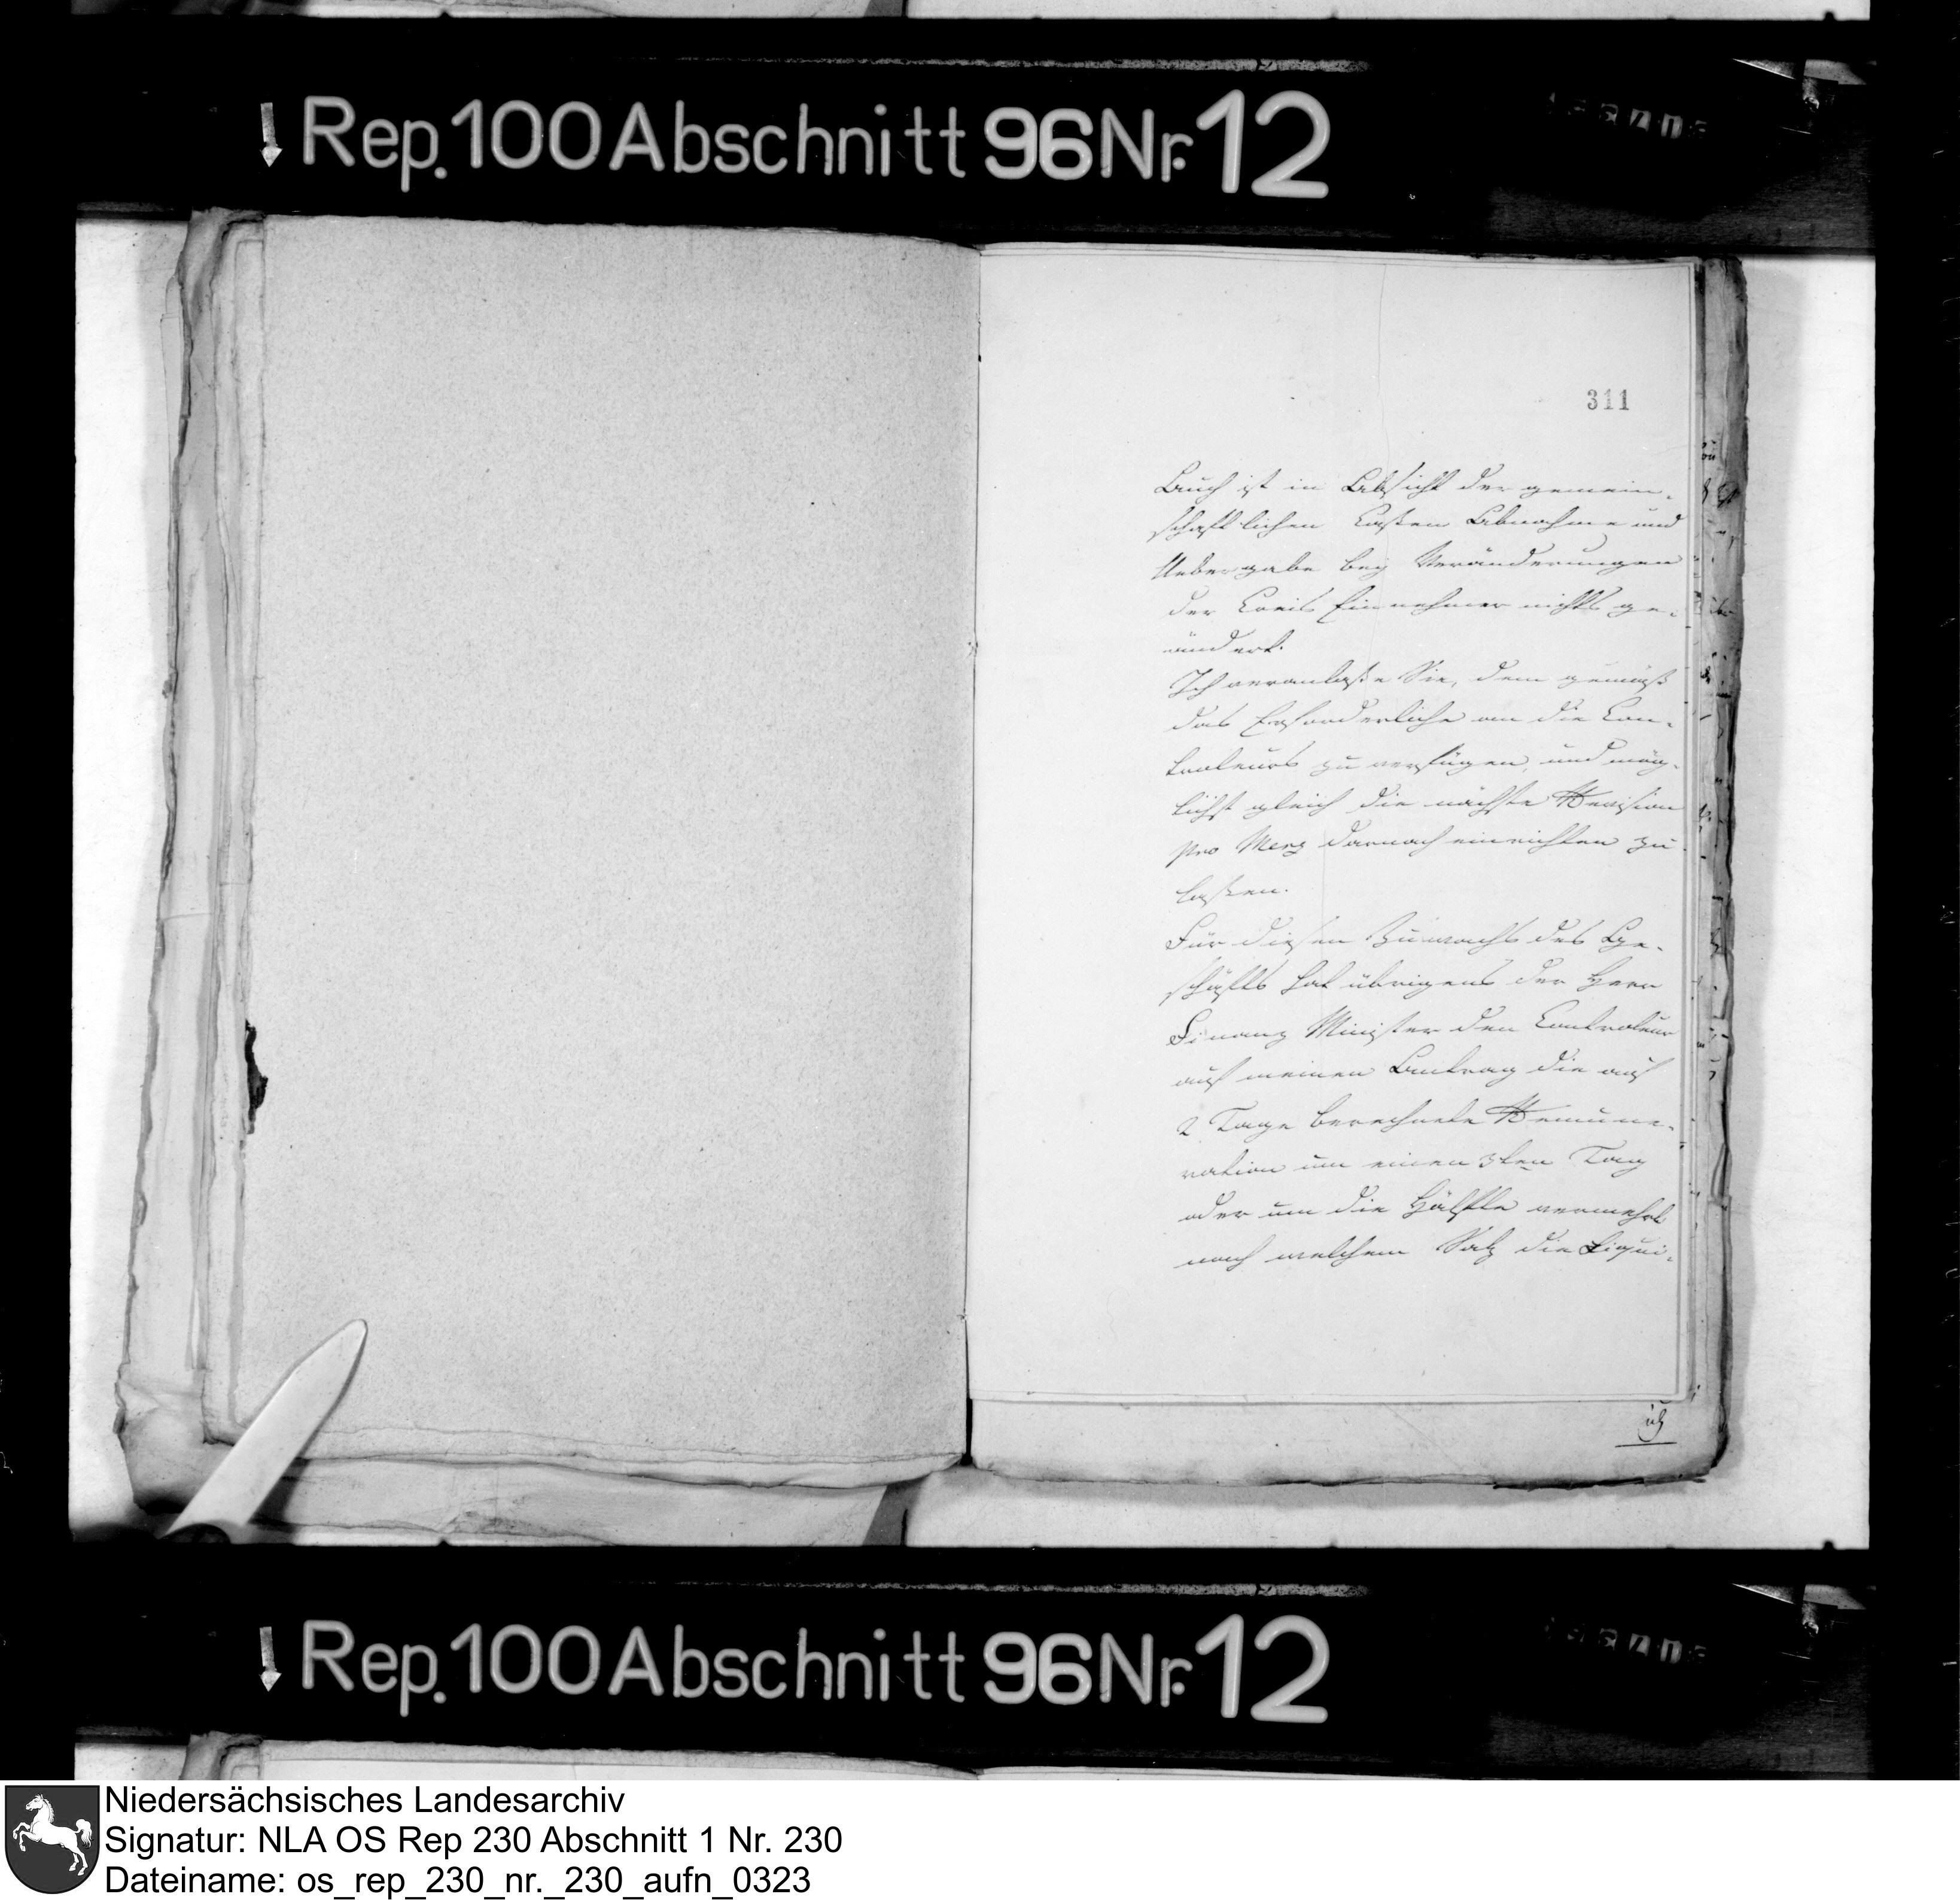 Rep. 100 Abschnitt 96 Nr. 12
311
Auch ist in Absicht der gemein-
schaftlichen Cassen Abnahme und
Uebergabe bey Veränderungen
der Creis Einnehmer nichts ge-
ändert.
Ich veranlasse Sie, dem gemäß
das Erforderliche an die Con-
troleurs zu verfügen, und mög-
lichst gleich die nächste Revision
pro Merz darnach einrichten zu
lassen.
Für diesen Zuwachs des Ge-
schäfts hat übrigens der Herr
Finanz Minister den Controleurs
auf meinen Antrag die auf
2 Tage berechnete Remune-
ration um einen 3ten Tag
oder um die Hälfte vermehrt
nach welchem Satz die Liqui-
Rep. 100 Abschnitt 96 Nr. 12
Niedersächsisches Landesarchiv
Signatur: NLA OS Rep 230 Abschnitt 1 Nr. 230
Dateiname: os_rep_230_nr._230_aufn_0323